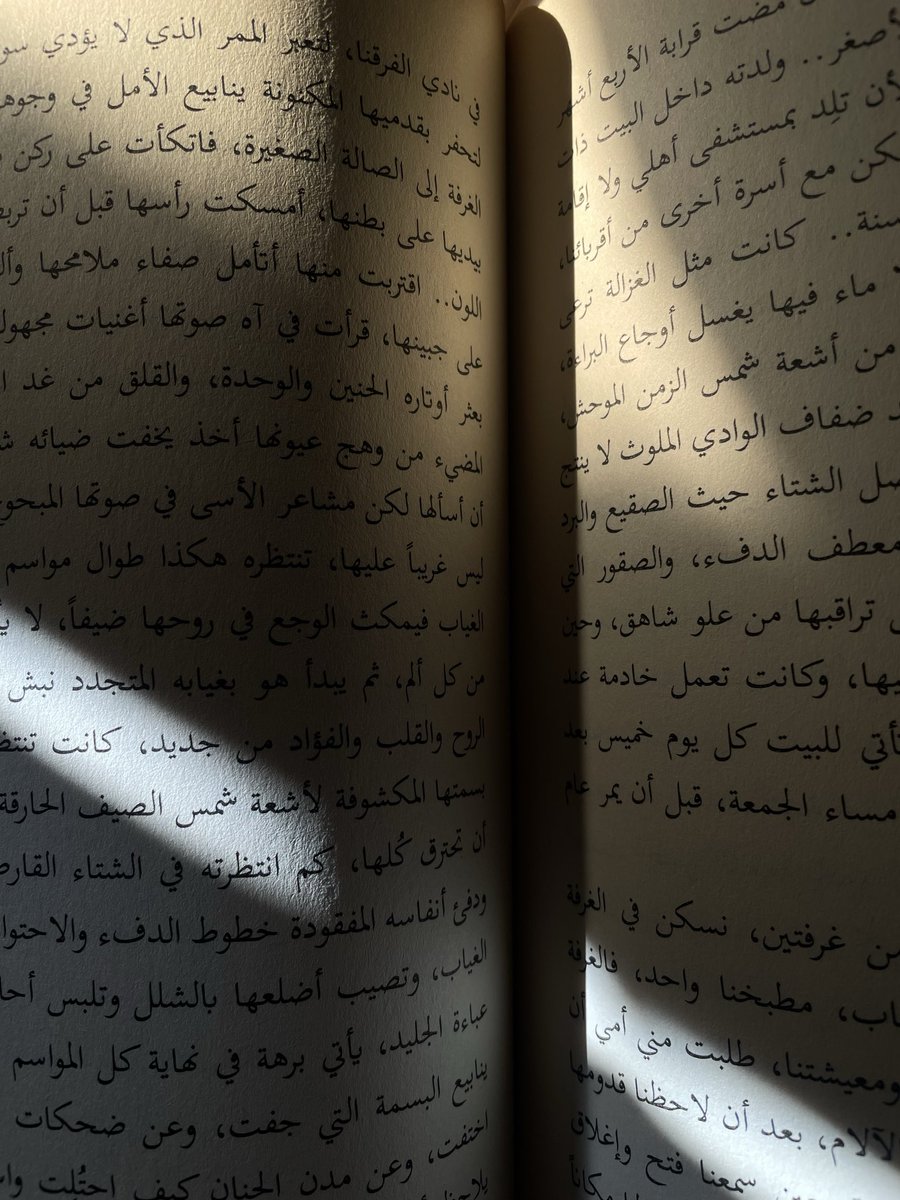 مضت قرابة الأربع أشهر
لأصغر.. ولدته داخل البيت ذات
لأن تلِد بمستشفى أهلي ولا إقامة
كن مع أسرة أخرى من أقربائنا،
سنة.. كانت مثل الغزالة ترعى
ماء فيها يغسل أوجاع البراءة،
من أشعة شمس الزمن الموحش،
ضفاف الوادي الملوث لا ينتج
سل الشتاء حيث الصقيع والبرد
معطف الدفء، والصقور التي
تراقبها من علو شاهق، وحين
يها، وكانت تعمل خادمة عند
تأتي للبيت كل يوم خميس بعد
مساء الجمعة، قبل أن يمر عام
من غرفتين، نسكن في الغرفة
اب، مطبخنا واحد، فالغرفة
ومعيشتنا، طلبت مني أمي أن
الآلام، بعد أن لاحظنا قدومها
سمعنا فتح وإغلاق
في نادي الفرقنا، لتعبر الممر الذي لا يؤدي سو
لتحفر بقدميها المكنونة ينابيع الأمل في وجوه
الغرفة إلى الصالة الصغيرة، فاتكأت على ركن
بيديها على بطنها، أمسكت رأسها قبل أن تربط
اللون.. اقتربت منها أتأمل صفاء ملامحها وأل
على جبينها، قرأت في آه صوتها أغنيات مجهول
بعثر أوتاره الحنين والوحدة، والقلق من غد ا
المضيء من وهج عيونها أخذ يخفت ضيائه ش
أن أسألها لكن مشاعر الأسى في صوتها المبحو
ليس غريباً عليها، تنتظره هكذا طوال مواسم
الغياب فيمكث الوجع في روحها ضيفاً، لا
من كل ألم، ثم يبدأ هو بغيابه المتجدد نبش
الروح والقلب والفؤاد من جديد، كانت تنتظ
بسمتها المكشوفة لأشعة شمس الصيف الحارقة
أن تحترق كُلها، كم انتظرته في الشتاء القار
ودفئ أنفاسه المفقودة خطوط الدفء والاحتوا
الغياب، وتصيب أضلعها بالشلل وتلبس أحا
عباءة الجليد، يأتي برهة في نهاية كل المواسم
ينابيع البسمة التي جفت، وعن ضحكات
اختفت، وعن مدن الحنان كيف احتُلت وا